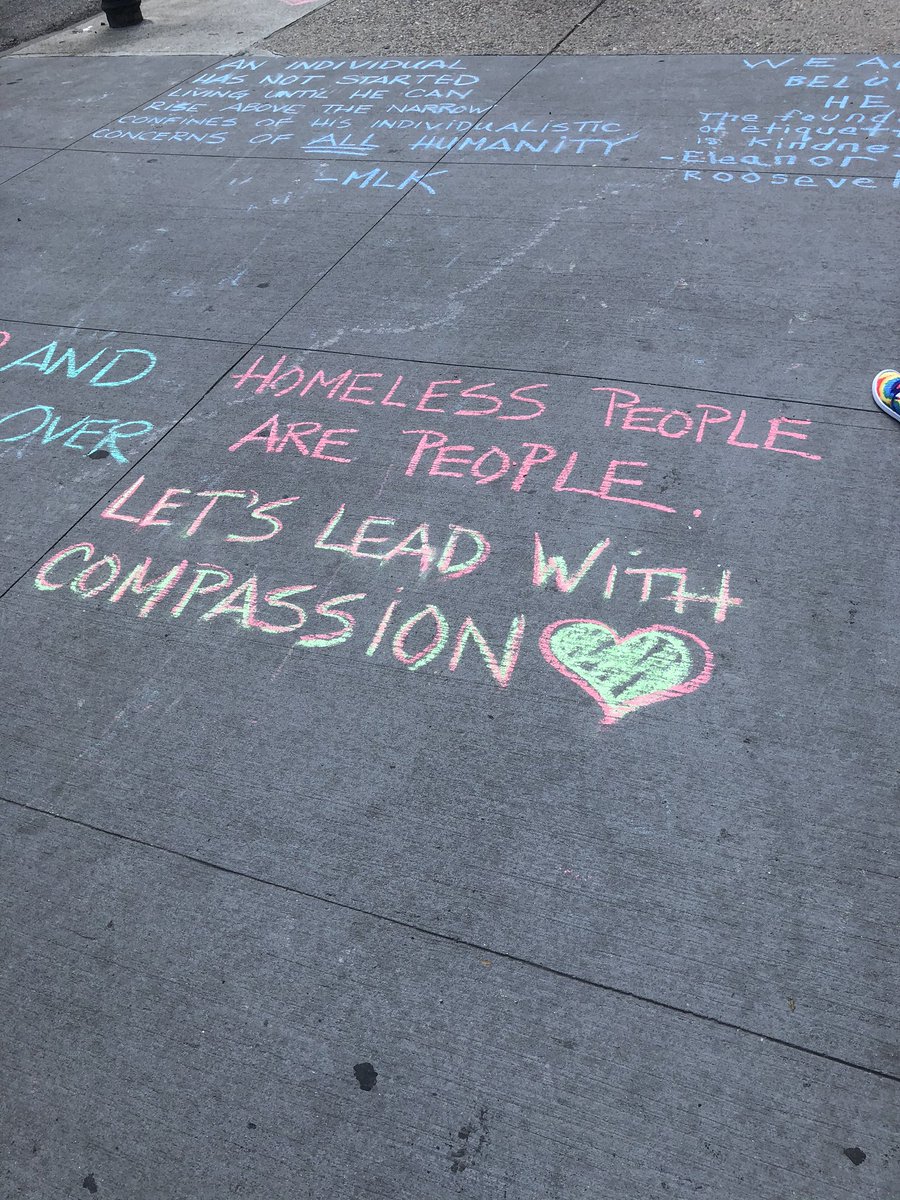 AN INDIVIDUAL
HAS NOT STARTED
LIVING UNTIL HE CAN
RISE ABOVE THE NARROW
CONFINES OF HIS INDIVIDUALISTIC
CONCERNS OF ALL HUMANITY
-MLK
WE AL
BELO
HE
The found
of etiquett
is kindne
-Eleanor
Roosevel
AND
OVER
HOMELESS PEOPLE
ARE PEOPLE.
LET'S LEAD WITH
COMPASSION